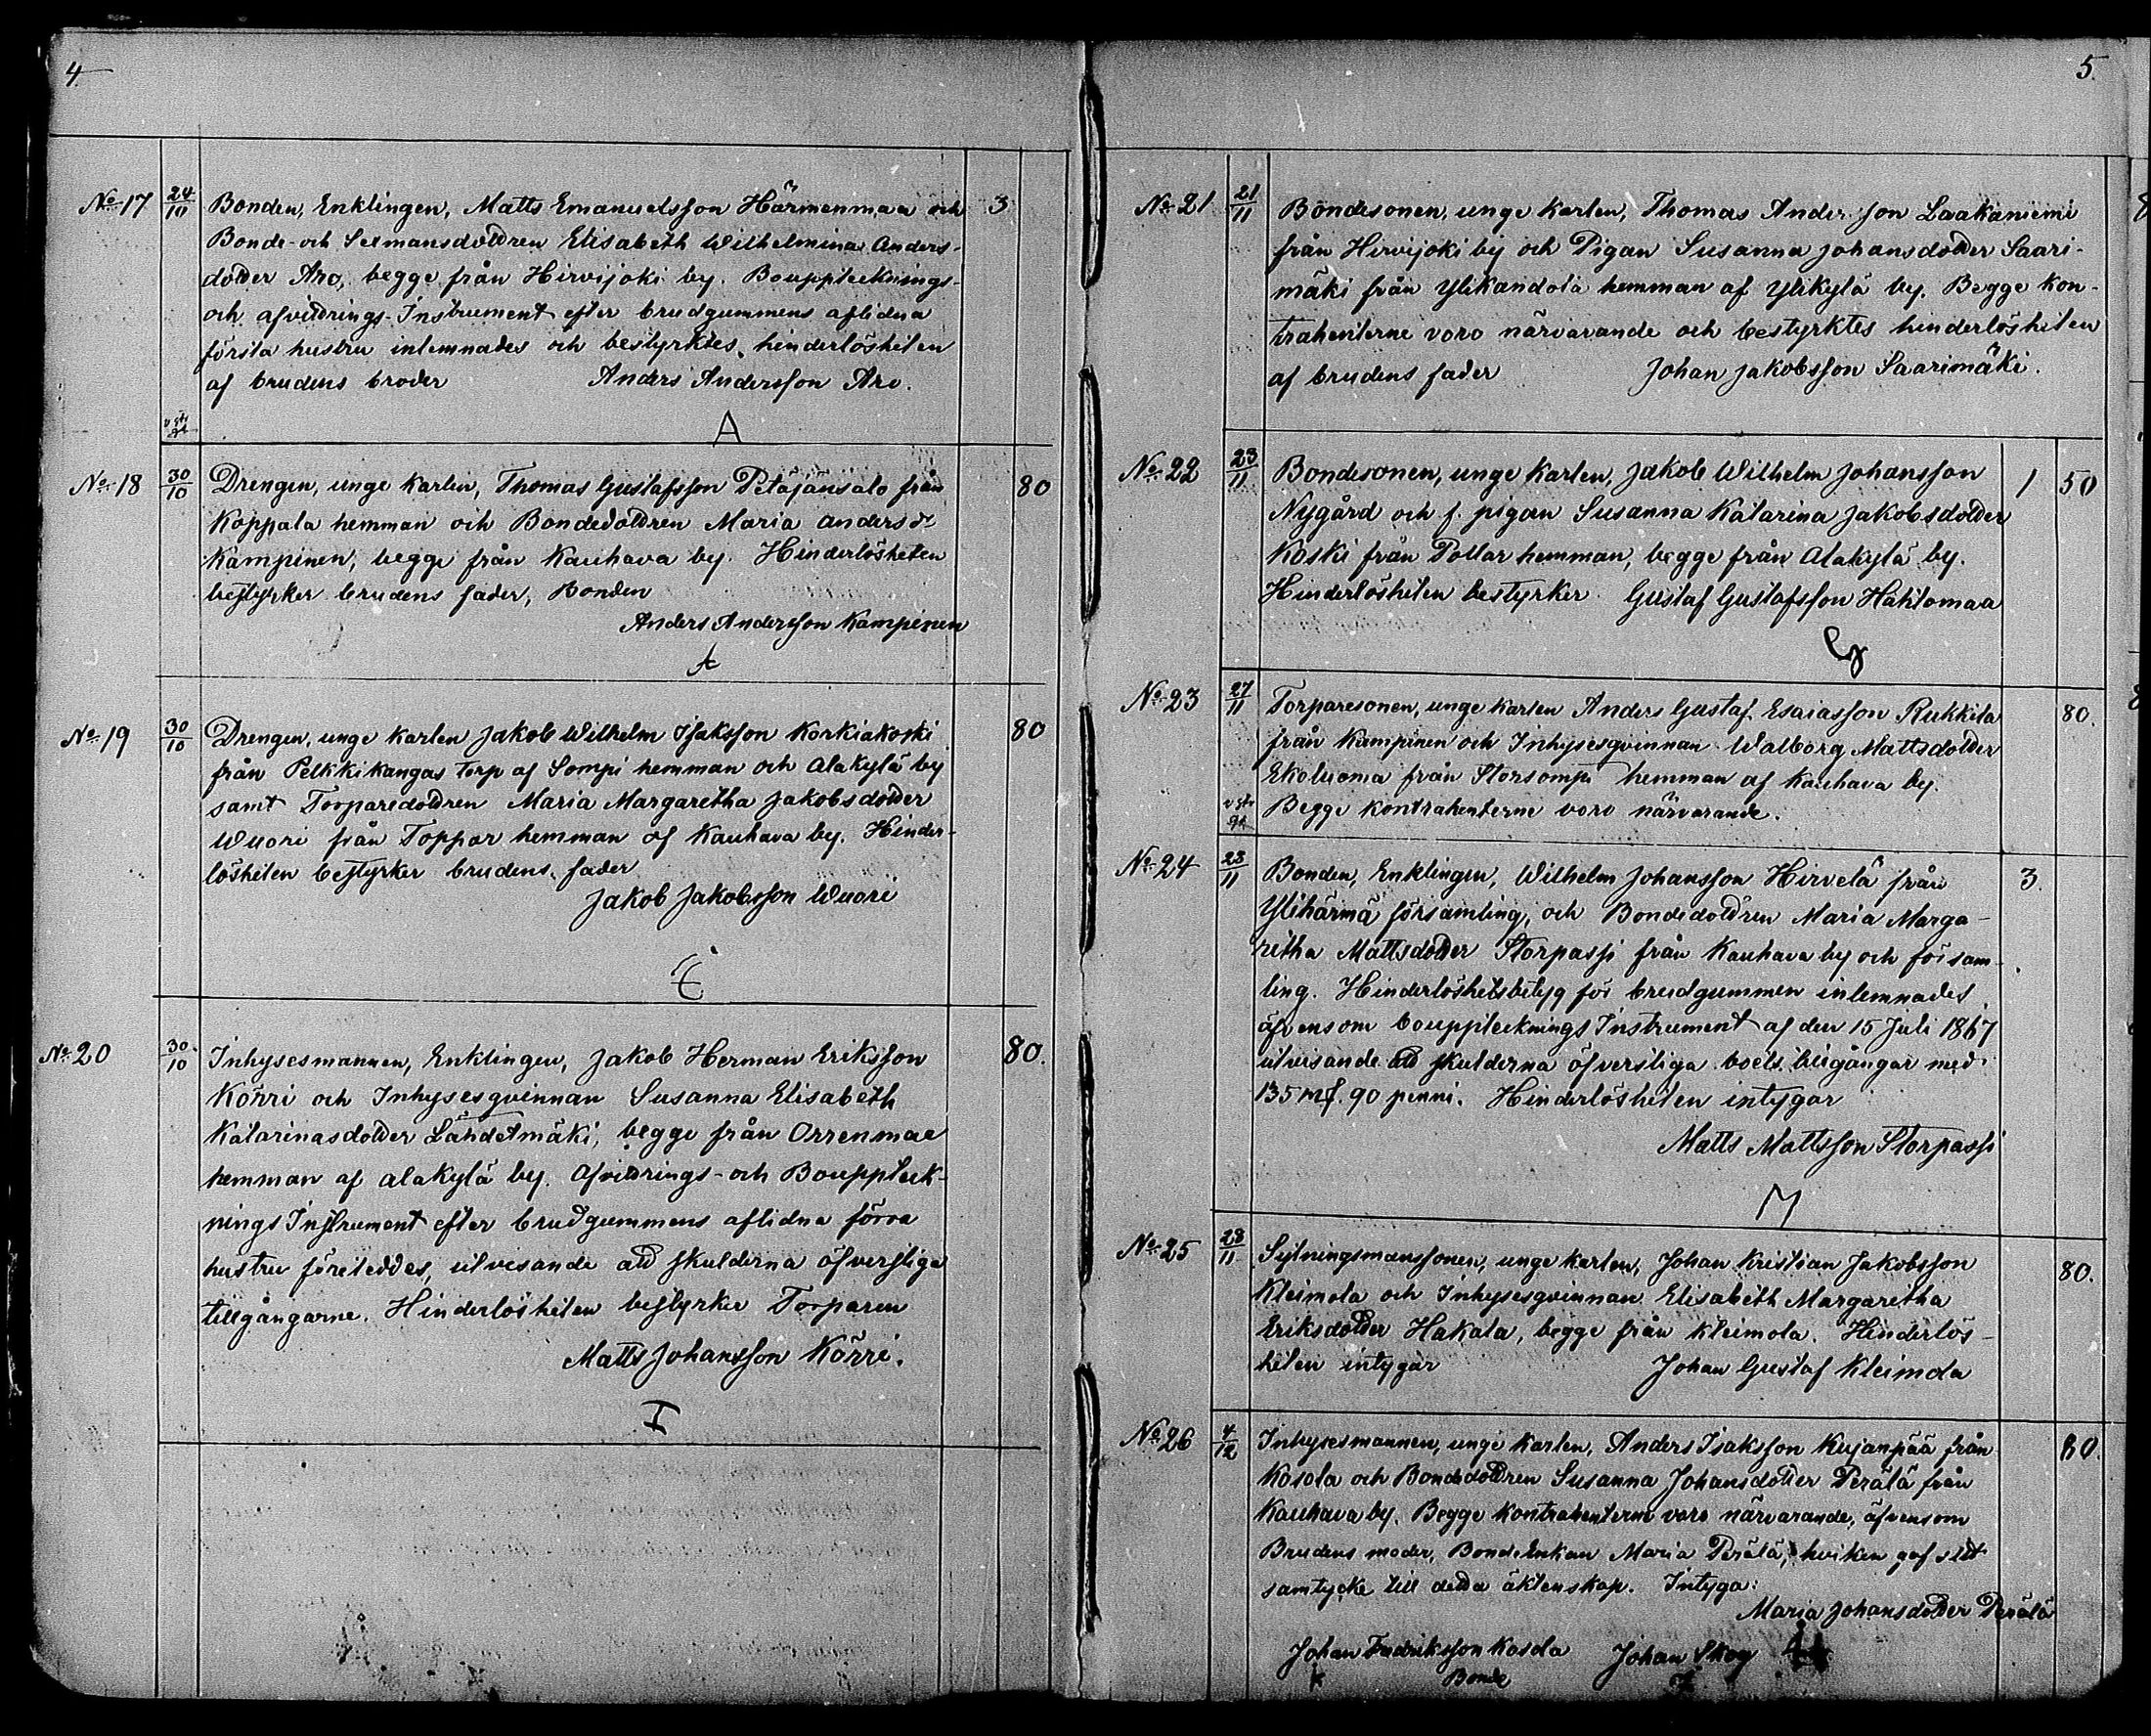 4.
No 17 24/10 Bonden, Enklingen, Matts Emanuelsson Härmänmaa och 3
Bonde- och Sexmansdottren Elisabeth Wilhelmina Anders-
dotter Aro, begge från Hirvijoki by. Bouppteknings-
och afvittrings-Instrument efter brudgummens aflidna
första hustru inlemnades och bestyrktes hinderlösheten
af brudens broder Anders Andersson Aro.
A
No 18 30/10 Drengen, unge karlen, Thomas Gustafsson Petäjänsalo från 80
Koppala hemman och Bondedottren Maria Andersdr
Kampinen, begge från Kauhava by. Hinderlösheten
bestyrker brudens fader, Bonden
Anders Andersson Kampinen
A
No 19 30/10 Drengen, unge karlen Jakob Wilhelm Isaksson Korkiakoski 80
från Pelkkikangas torp af Sompi hemman och Alakylä by
samt Torparedottren Maria Margaretha Jakobsdotter
Wuori från Toppar hemman af Kauhava by. Hinder-
lösheten bestyrker brudens fader
Jakob Jakobsson Wuori
No 20 30/10 Inhysesmannen, Enklingen, Jakob Herman Eriksson 80.
Körri och Inhysesqvinnan Susanna Elisabeth
Katarinasdotter Lähdetmäki, begge från Orrenmaa
hemman af Alakylä by. Afvittrings- och Bouppteck-
nings Instrument efter brudgummens aflidna förra
hustru företeddes, utvisande att skulderna öfverstiga
tillgångarne. Hinderlösheten bestyrker Torparen
Matts Johansson Körri.
I
5.
No 21 21/11 Bondesonen, unge karlen, Thomas Andersson Laakaniemi
från Hirvijoki by och Pigan Susanna Johansdotter Saari-
mäki från Ylikandola hemman af Ylikylä by. Begge kon-
trahenterne voro närvarande och bestyrktes hinderlösheten
af brudens fader Johan Jakobsson Saarimäki.
No 22 23/11 Bondesonen, unge karlen, Jakob Wilhelm Johansson 1 50
Nygård och f. pigan Susanna Katarina Jakobsdotter
Koski från Pollar hemman, begge från Alakylä by.
Hinderlösheten bestyrker Gustaf Gustafsson Hahtomaa
G
No 23 27/11 Torparesonen, unge karlen Anders Gustaf Esaiasson Rukkila 80.
från Kampinen och Inhysesqvinnan Walborg Mattsdotter
Ekoluoma från Storsompi hemman af Kauhava by.
Begge kontrahenterne voro närvarande.
No 24 28/11 Bonden, Enklingen, Wilhelm Johansson Hirvelä från 3.
Ylihärmä församling, och Bondedottren Maria Marga-
retha Mattsdotter Storpassi från Kauhava by och försam-
ling. Hinderlöshetsbetyg för brudgummen inlemnades
äfvensom bouppteknings Instrument af den 15 Juli 1867
utvisande att skulderna öfverstiga boets tillgångar med
135 mf. 90 penni. Hinderlösheten intygar
Matts Mattsson Storpassi
M
No 25 28/11 Sytningsmanssonen, unge karlen, Johan Kristian Jakobsson 80.
Kleimola och Inhysesqvinnan Elisabeth Margaretha
Eriksdotter Hakala, begge från Kleimola. Hinderlös-
heten intygar Johan Gustaf Kleimola
No 26 4/12 Inhysesmannen, unge karlen, Anders Isaksson Kujanpää från 80.
Kosola och Bondedottren Susanna Johansdotter Perälä från
Kauhava by. Begge kontrahenterne voro närvarande, äfvensom
Brudens moder, Bonde Enkan Maria Perälä, hvilken gaf sitt
samtycke till detta äktenskap. Intyga:
Maria Johansdotter Perälä
Johan Fredriksson Kosola Johan Skog
Bonde